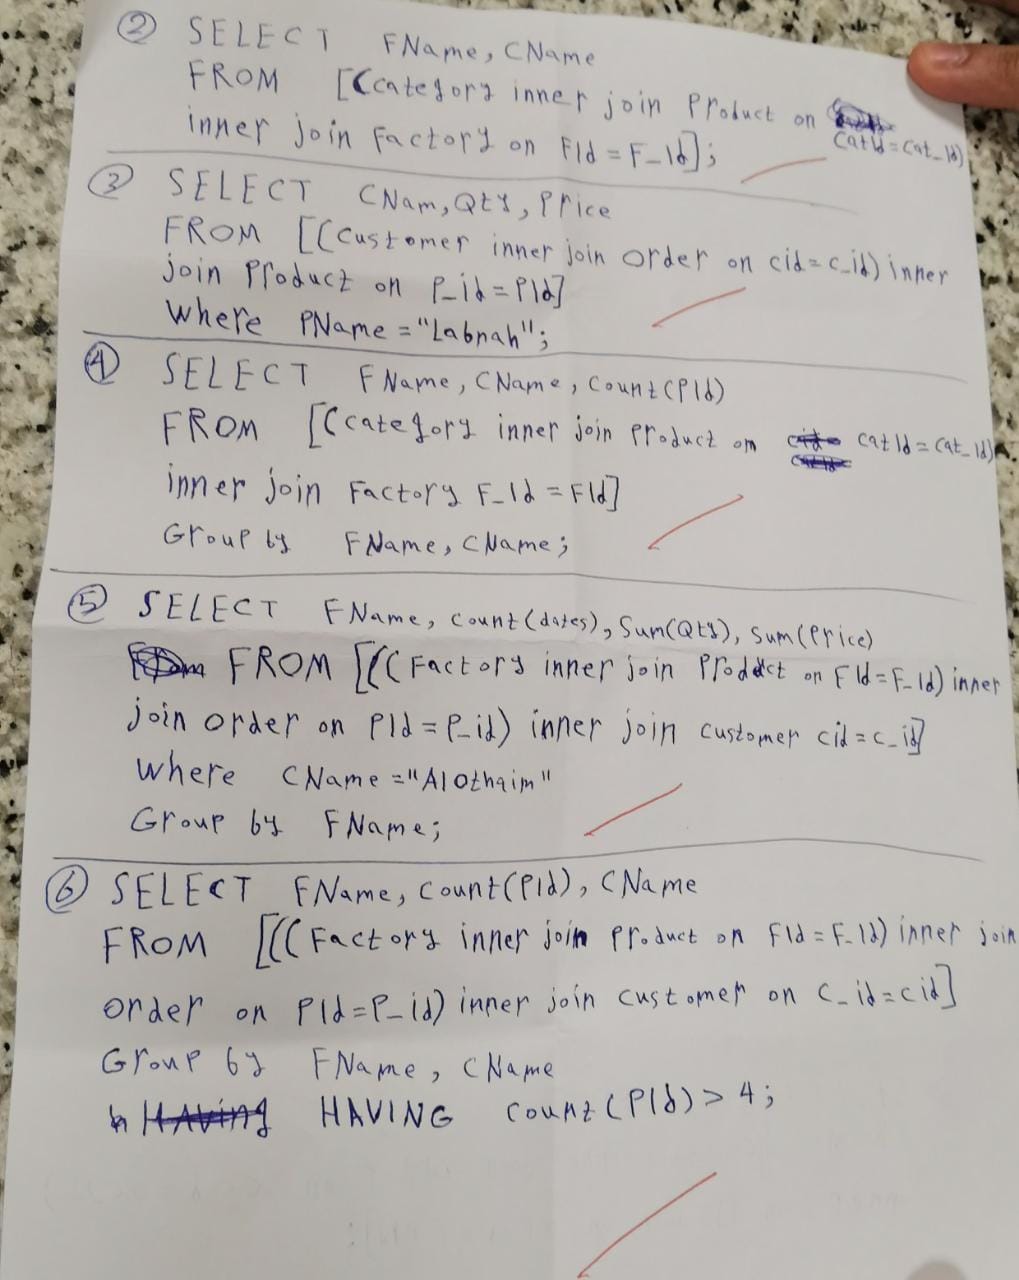 ② SELECT FName, CName
FROM [(category inner join Product on CatId = Cat_Id)
inner join Factory on FId = F_Id];
③ SELECT CNam, Qty, Price
FROM [(customer inner join order on cid = c_id) inner
join Product on P_id = PId]
Where PName = "Labnah";
④ SELECT FName, CName, Count(PId)
FROM [(category inner join Product on CatId = Cat_Id)
inner join Factory F_Id = FId]
Group by FName, CName;
⑤ SELECT FName, count(dates), Sum(Qty), Sum(Price)
FROM [((Factory inner join Product on FId = F_Id) inner
join order on PId = P_id) inner join customer cid = c_id]
Where CName = "Alothaim"
Group by FName;
⑥ SELECT FName, count(PId), CName
FROM [((Factory inner join Product on FId = F_Id) inner join
order on PId = P_id) inner join customer on c_id = cid]
Group by FName, CName
HAVING count(PId) > 4;